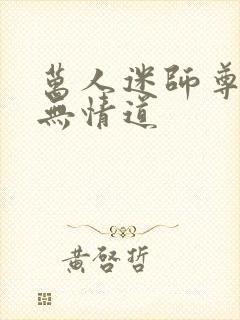 萬人迷師尊
無情道
黃啓哲